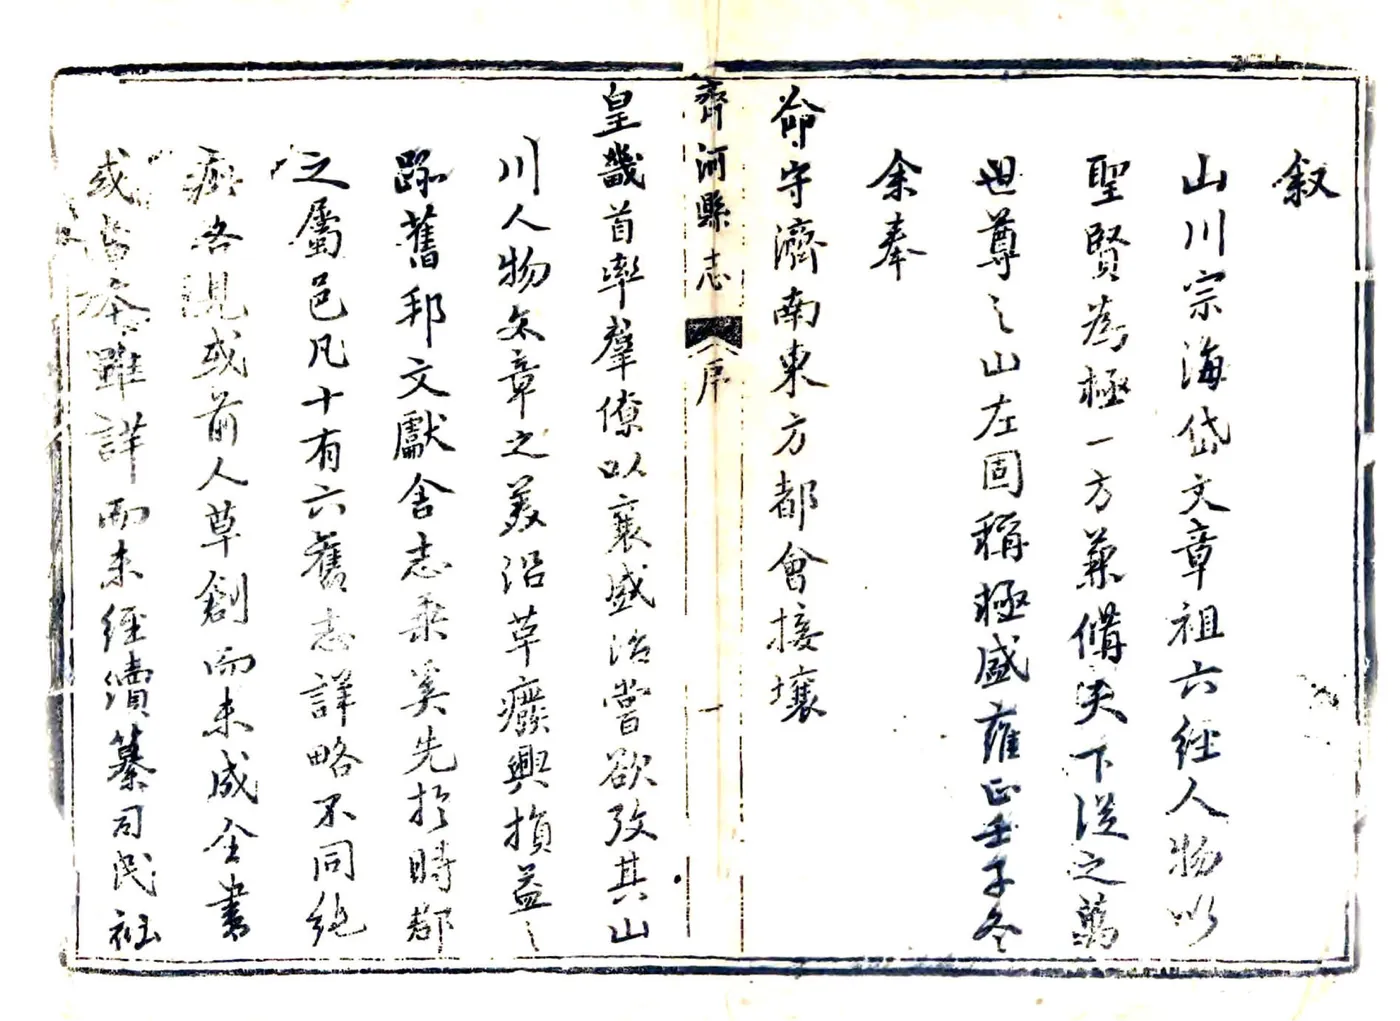 叙
山川宗海岱文章祖六經人物以
聖賢為極一方兼備天下從之萬
世尊之山左固稱極盛雍正壬子冬
余奉
命守濟南東方都會接壤
齊河縣志
序
一
皇畿首率羣僚以襄盛治嘗欲攷其山
川人物文章之美沿革廢興損益之
蹤舊邦文獻舍志乘奚先於時郡
之屬邑凡十有六舊志詳略不同純
疵各見或前人草創而未成全書
或當本雖詳而未經續纂司民社